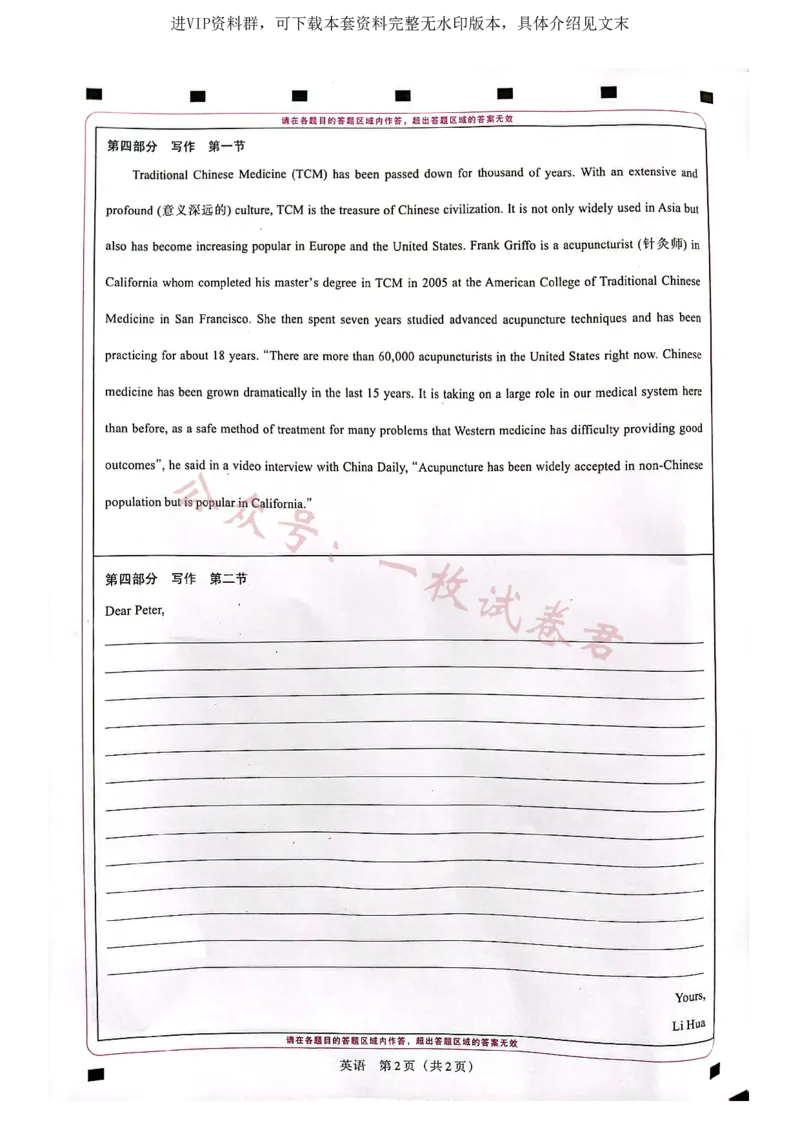 进VIP资料群，可下载本套资料完整无水印版本，具体介绍见文末
请在各题目的答题区域内作答，超出答题区域的答案无效
第四部分 写作 第一节
Traditional Chinese Medicine (TCM) has been passed down for thousand of years. With an extensive and
profound (意义深远的) culture, TCM is the treasure of Chinese civilization. It is not only widely used in Asia but
also has become increasing popular in Europe and the United States. Frank Griffo is a acupuncturist (针灸师) in
California whom completed his master's degree in TCM in 2005 at the American College of Traditional Chinese
Medicine in San Francisco. She then spent seven years studied advanced acupuncture techniques and has been
practicing for about 18 years. "There are more than 60,000 acupuncturists in the United States right now. Chinese
medicine has been grown dramatically in the last 15 years. It is taking on a large role in our medical system here
than before, as a safe method of treatment for many problems that Western medicine has difficulty providing good
outcomes", he said in a video interview with China Daily, "Acupuncture has been widely accepted in non-Chinese
population but is popular in California."
公众号：一枚试卷君
第四部分 写作 第二节
Dear Peter,
Yours,
Li Hua
请在各题目的答题区域内作答，超出答题区域的答案无效
英语 第2页（共2页）